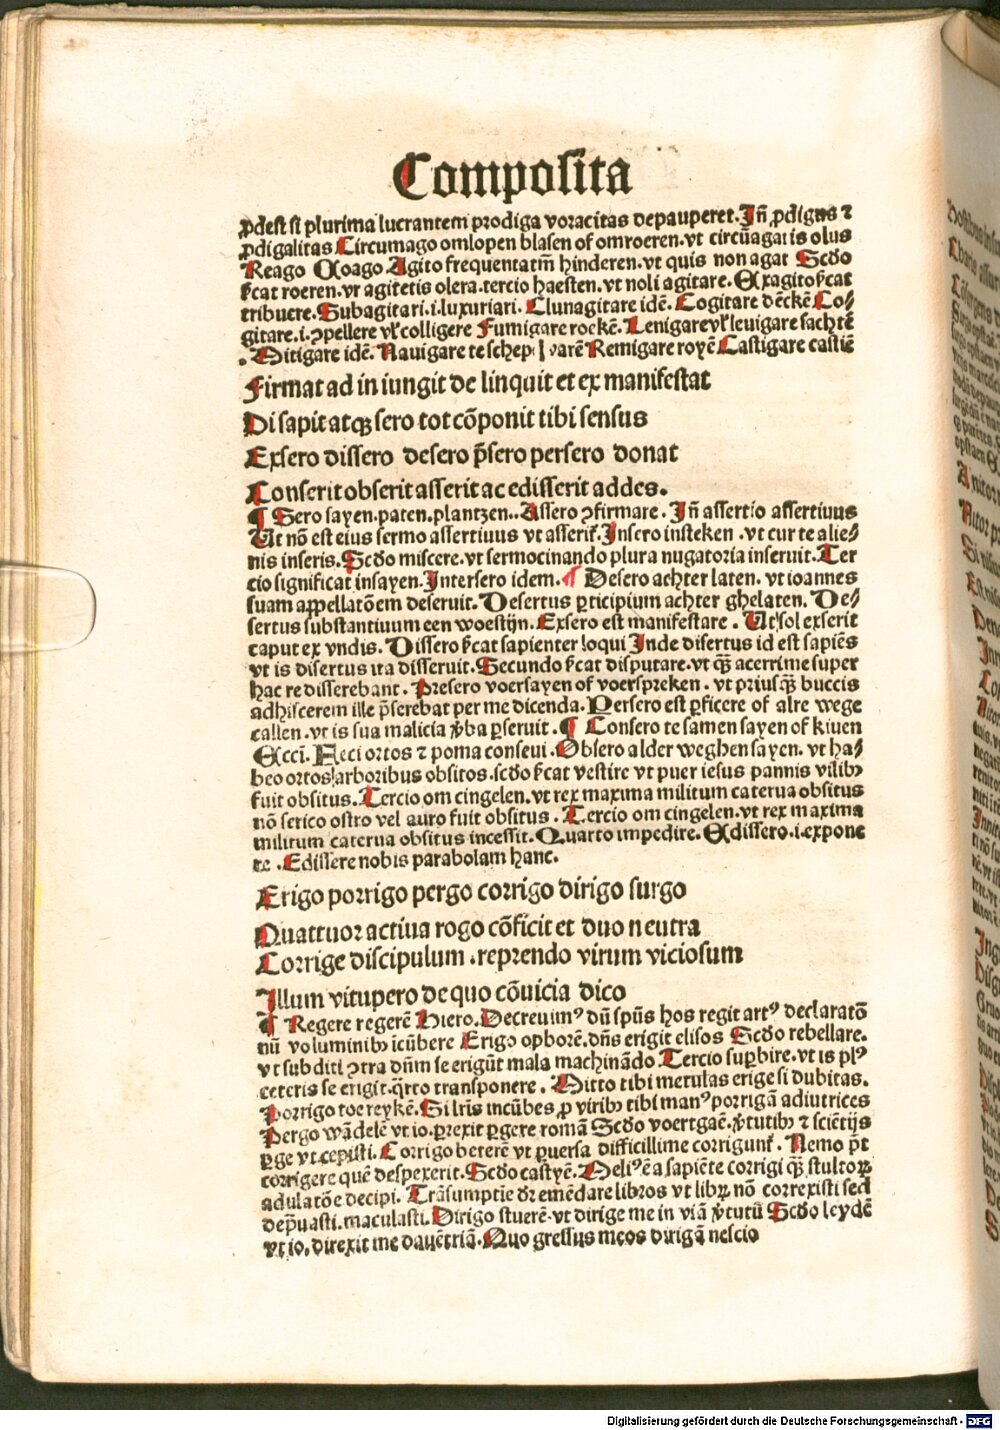 Composita
ꝓdest si plurima lucrantem prodiga voracitas depauperet. Iñ ꝓdigus ⁊
ꝓdigalitas Circumago omlopen blasen of omroeren. vt circũagat is olus
Reago Coago Agito frequentatm̃ hinderen. vt quis non agat Scđo
s̃cat roeren. vt agitetis olera. tercio haesten. vt noli agitare. Exagito s̃cat
tribuere. Subagitari. i. luxuriari. Clunagitare idẽ. Cogitare dẽckẽ Co⸗
gitare. i. ꝯpellere vl̕ colligere Fumigare rockẽ. Lenigare vl̕ leuigare sachtẽ
. Mitigare idẽ. Nauigare te schep varẽ Remigare royẽ Castigare castiẽ
Firmat ad in iungit de linquit et ex manifestat
Di sapit atqꝫ sero tot cõponit tibi sensus
Exsero dissero desero p̃sero persero donat
Conserit obserit asserit ac edisserit addes.
¶ Sero sayen. paten. plantzen.. Assero ꝯfirmare. Iñ assertio assertiuus
Ut nõ est eius sermo assertiuus vt asserit̕. Insero insteken. vt cur te alie⸗
nis inseris. Scđo miscere. vt sermocinando plura nugatoria inseruit. Ter
cio significat insayen. Intersero idem. ¶ Desero achter laten. vt ioannes
suam appellatõem deseruit. Desertus ꝑticipium achter ghelaten. De⸗
sertus substantiuum een woestijn. Exsero est manifestare. Ut sol exserit
caput ex vndis. Dissero s̃cat sapienter loqui Inde disertus id est sapiẽs
vt is disertus ita disseruit. Secundo s̃cat disputare. vt qꝫ̃ acerrime super
hac re disserebant. Presero voersayen of voerspreken. vt priusqꝫ̃ buccis
adhiscerem ille p̃serebat per me dicenda. Persero est ꝑficere of alre wege
callen. vt is sua malicia v̕ba ꝑseruit. ¶ Consero te samen sayen of kiuen
Ecci. Feci ortos ⁊ poma conseui. Obsero alder weghen sayen. vt ha⸗
beo ortos arboribus obsitos. scđo s̃cat vestire vt puer iesus pannis vilibꝫ
fuit obsitus. Tercio om cingelen. vt rex maxima militum caterua obsitus
nõ serico ostro vel auro fuit obsitus. Tercio om cingelen. vt rex maxima
militum caterua obsitus incessit. Quarto impedire. Edissero. i. expone
re. Edissere nobis parabolam hanc.
Erigo porrigo pergo corrigo dirigo surgo
Quattuor actiua rogo cõficit et duo neutra
Corrige discipulum. reprendo virum viciosum
Illum vitupero de quo cõuicia dico
¶ Regere regerẽ Hiero. Decreuimꝰ dũ spũs hos regit artꝰ declaratõ
nũ voluminibꝫ icũbere Erigo opborẽ. dñs erigit elisos Scđo rebellare.
vt subditi ꝯtra dñm se erigũt mala machinãdo Tercio suꝑbire. vt is plꝰ
ceteris se erigit. q̃rto transponere. Mitto tibi metulas erige si dubitas.
Porrigo toereykẽ. Si lr̃is incũbes ꝓ viribꝫ tibi manꝰ porrigã adiutrices
Pergo wãdelẽ vt io. ꝑrexit ꝑgere romã Scđo voertgaẽ. v̕tutibꝫ ⁊ sciẽtijs
ꝑge vt cepisti. Corrigo beterẽ vt ꝑuersa difficillime corrigunt̕. Nemo p̃t
corrigere quẽ despexerit. Scđo castyẽ. Meliꝰ ẽ a sapiẽte corrigi qꝫ̃ stultoꝝ
adulatõe decipi. Trãsumptie đr emẽdare libros vt libꝝ nõ correxisti sed
dep̃uasti. maculasti. Dirigo stuerẽ. vt dirige me in viã v̕tutũ Scđo leydẽ
vt io. direxit me dauẽtriã. Quo gressus meos dirigã nescio
Digitalisierung gefördert durch die Deutsche Forschungsgemeinschaft - DFG